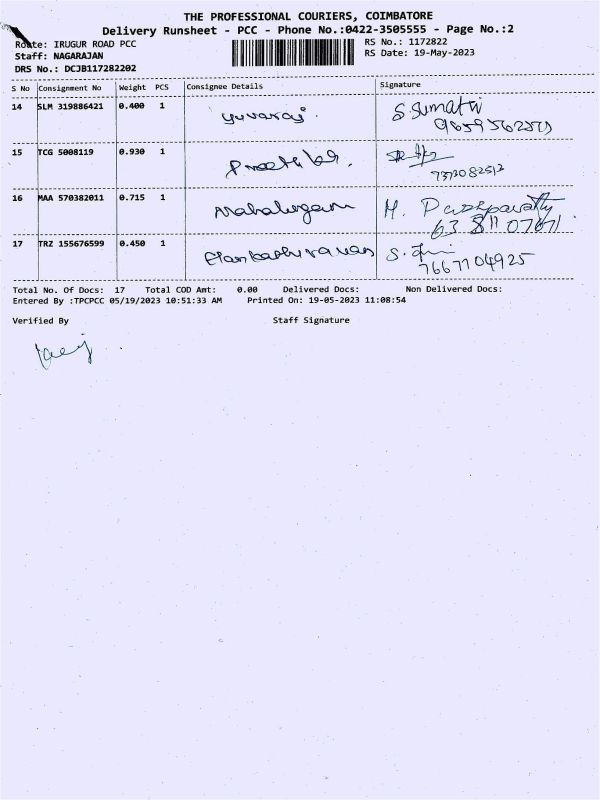 THE PROFESSIONAL COURIERS, COIMBATORE
Delivery Runsheet - PCC - Phone No.:0422-3505555 - Page No.:2
Route: IRUGUR ROAD PCC RS No.: 1172822
Staff: NAGARAJAN RS Date: 19-May-2023
DRS No.: DCJB117282202
S No Consignment No Weight PCS Consignee Details Signature
14 SLM 319886421 0.400 1 yuvaraj. S.Sumathi
15 TCG 5008119 0.930 1
7373082512
16 MAA 570382011 0.715 1 Mahalingam M.
63 811 07671
17 TRZ 155676599 0.450 1 Elankathiravan S.
7667104925
Total No. Of Docs: 17 Total COD Amt: 0.00 Delivered Docs: Non Delivered Docs:
Entered By :TPCPCC 05/19/2023 10:51:33 AM Printed On: 19-05-2023 11:08:54
Verified By Staff Signature